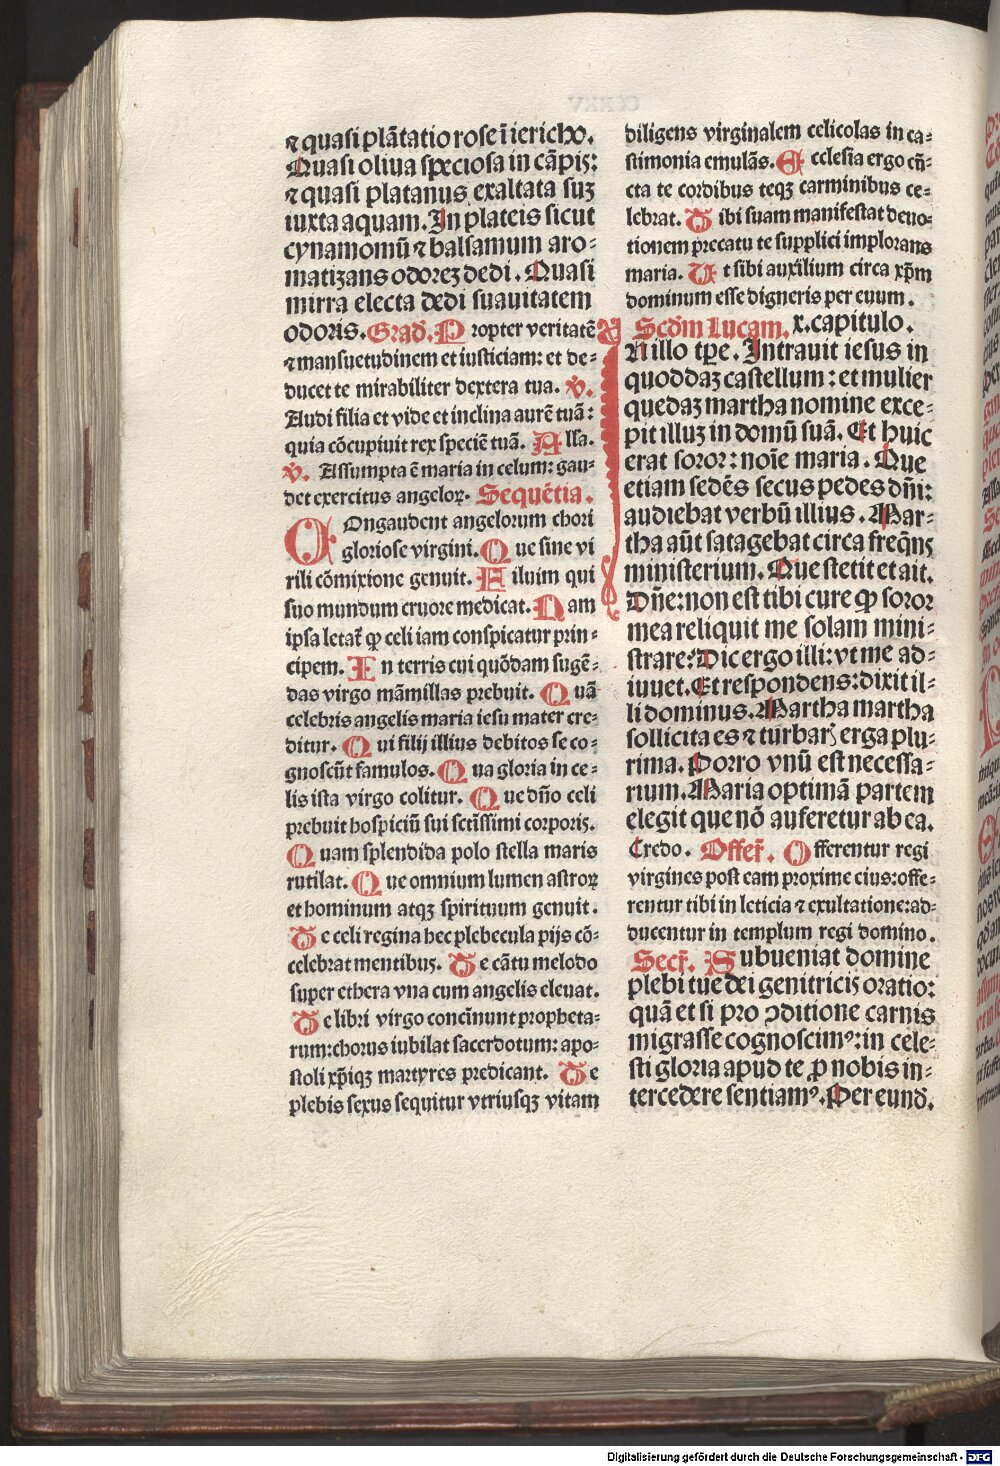 ⁊ quasi plãtatio rose ĩ iericho.
Quasi oliua speciosa in cãpis:
⁊ quasi platanus exaltata suꝫ
iuxta aquam. In plateis sicut
cynamomũ ⁊ balsamum aro-
matizans odoreꝫ dedi. Quasi
mirra electa dedi suauitatem
odoris. Grad. Propter veritatẽ
⁊ mansuetudinem et iusticiam: et de-
ducet te mirabiliter dextera tua. ℣.
Audi filia et vide et inclina aurẽ tuã:
quia cõcupiuit rex speciẽ tuã. Alla.
℣. Assumpta ẽ maria in celum: gau-
det exercitus angeloꝝ. Sequẽtia.
COngaudent angelorum chori
gloriose virgini. Que sine vi
rili cõmixione genuit. Filium qui
suo mundum cruore medicat. Nam
ipsa letat᷑ ꝙ celi iam conspicatur prin-
cipem. In terris cui quõdam sugẽ-
das virgo mãmillas prebuit. Quã
celebris angelis maria iesu mater cre-
ditur. Qui filij illius debitos se co-
gnoscũt famulos. Qua gloria in ce-
lis ista virgo colitur. Que dño celi
prebuit hospiciũ sui sctissimi corporis.
Quam splendida polo stella maris
rutilat. Que omnium lumen astroꝝ
et hominum atqꝫ spirituum genuit.
Te celi regina hec plebecula pijs cõ-
celebrat mentibus. Te cãtu melodo
super ethera vna cum angelis eleuat.
Te libri virgo concĩnunt propheta-
rum: chorus iubilat sacerdotum: apo-
stoli xp̃iqꝫ martyres predicant. Te
plebis sexus sequitur vtriusqꝫ vitam
diligens virginalem celicolas in ca-
stimonia emulãs. Ecclesia ergo cũ-
cta te cordibus teqꝫ carminibus ce-
lebrat. Tibi suam manifestat deuo-
tionem precatu te supplici implorans
maria. Ut sibi auxilium circa xp̃m
dominum esse digneris per euum.
Scdm Lucam. x. capitulo.
IN illo tꝑe. Intrauit iesus in
quoddaꝫ castellum: et mulier
quedaꝫ martha nomine exce-
pit illuꝫ in domũ suã. Et huic
erat soror: noĩe maria. Que
etiam sedẽs secus pedes dñi:
audiebat verbũ illius. Mar-
tha aũt satagebat circa freq̃ns
ministerium. Que stetit et ait.
Dñe: non est tibi cure ꝙ soror
mea reliquit me solam mini-
strare: Dic ergo illi: vt me ad-
iuuet. Et respondens: dixit il-
li dominus. Martha martha
sollicita es ⁊ turbaris erga plu-
rima. Porro vnũ est necessa-
rium. Maria optimã partem
elegit que nõ auferetur ab ea.
Credo. Offert᷑. Offerentur regi
virgines post eam proxime eius: offe-
rentur tibi in leticia ⁊ exultatione: ad-
ducentur in templum regi domino.
Secr̃. Subueniat domine
plebi tue dei genitricis oratio:
quã et si pro ꝯditione carnis
migrasse cognoscimꝰ: in cele-
sti gloria apud te ꝓ nobis in-
tercedere sentiamꝰ. Per eund.
Digitalisierung gefördert durch die Deutsche Forschungsgemeinschaft - DFG